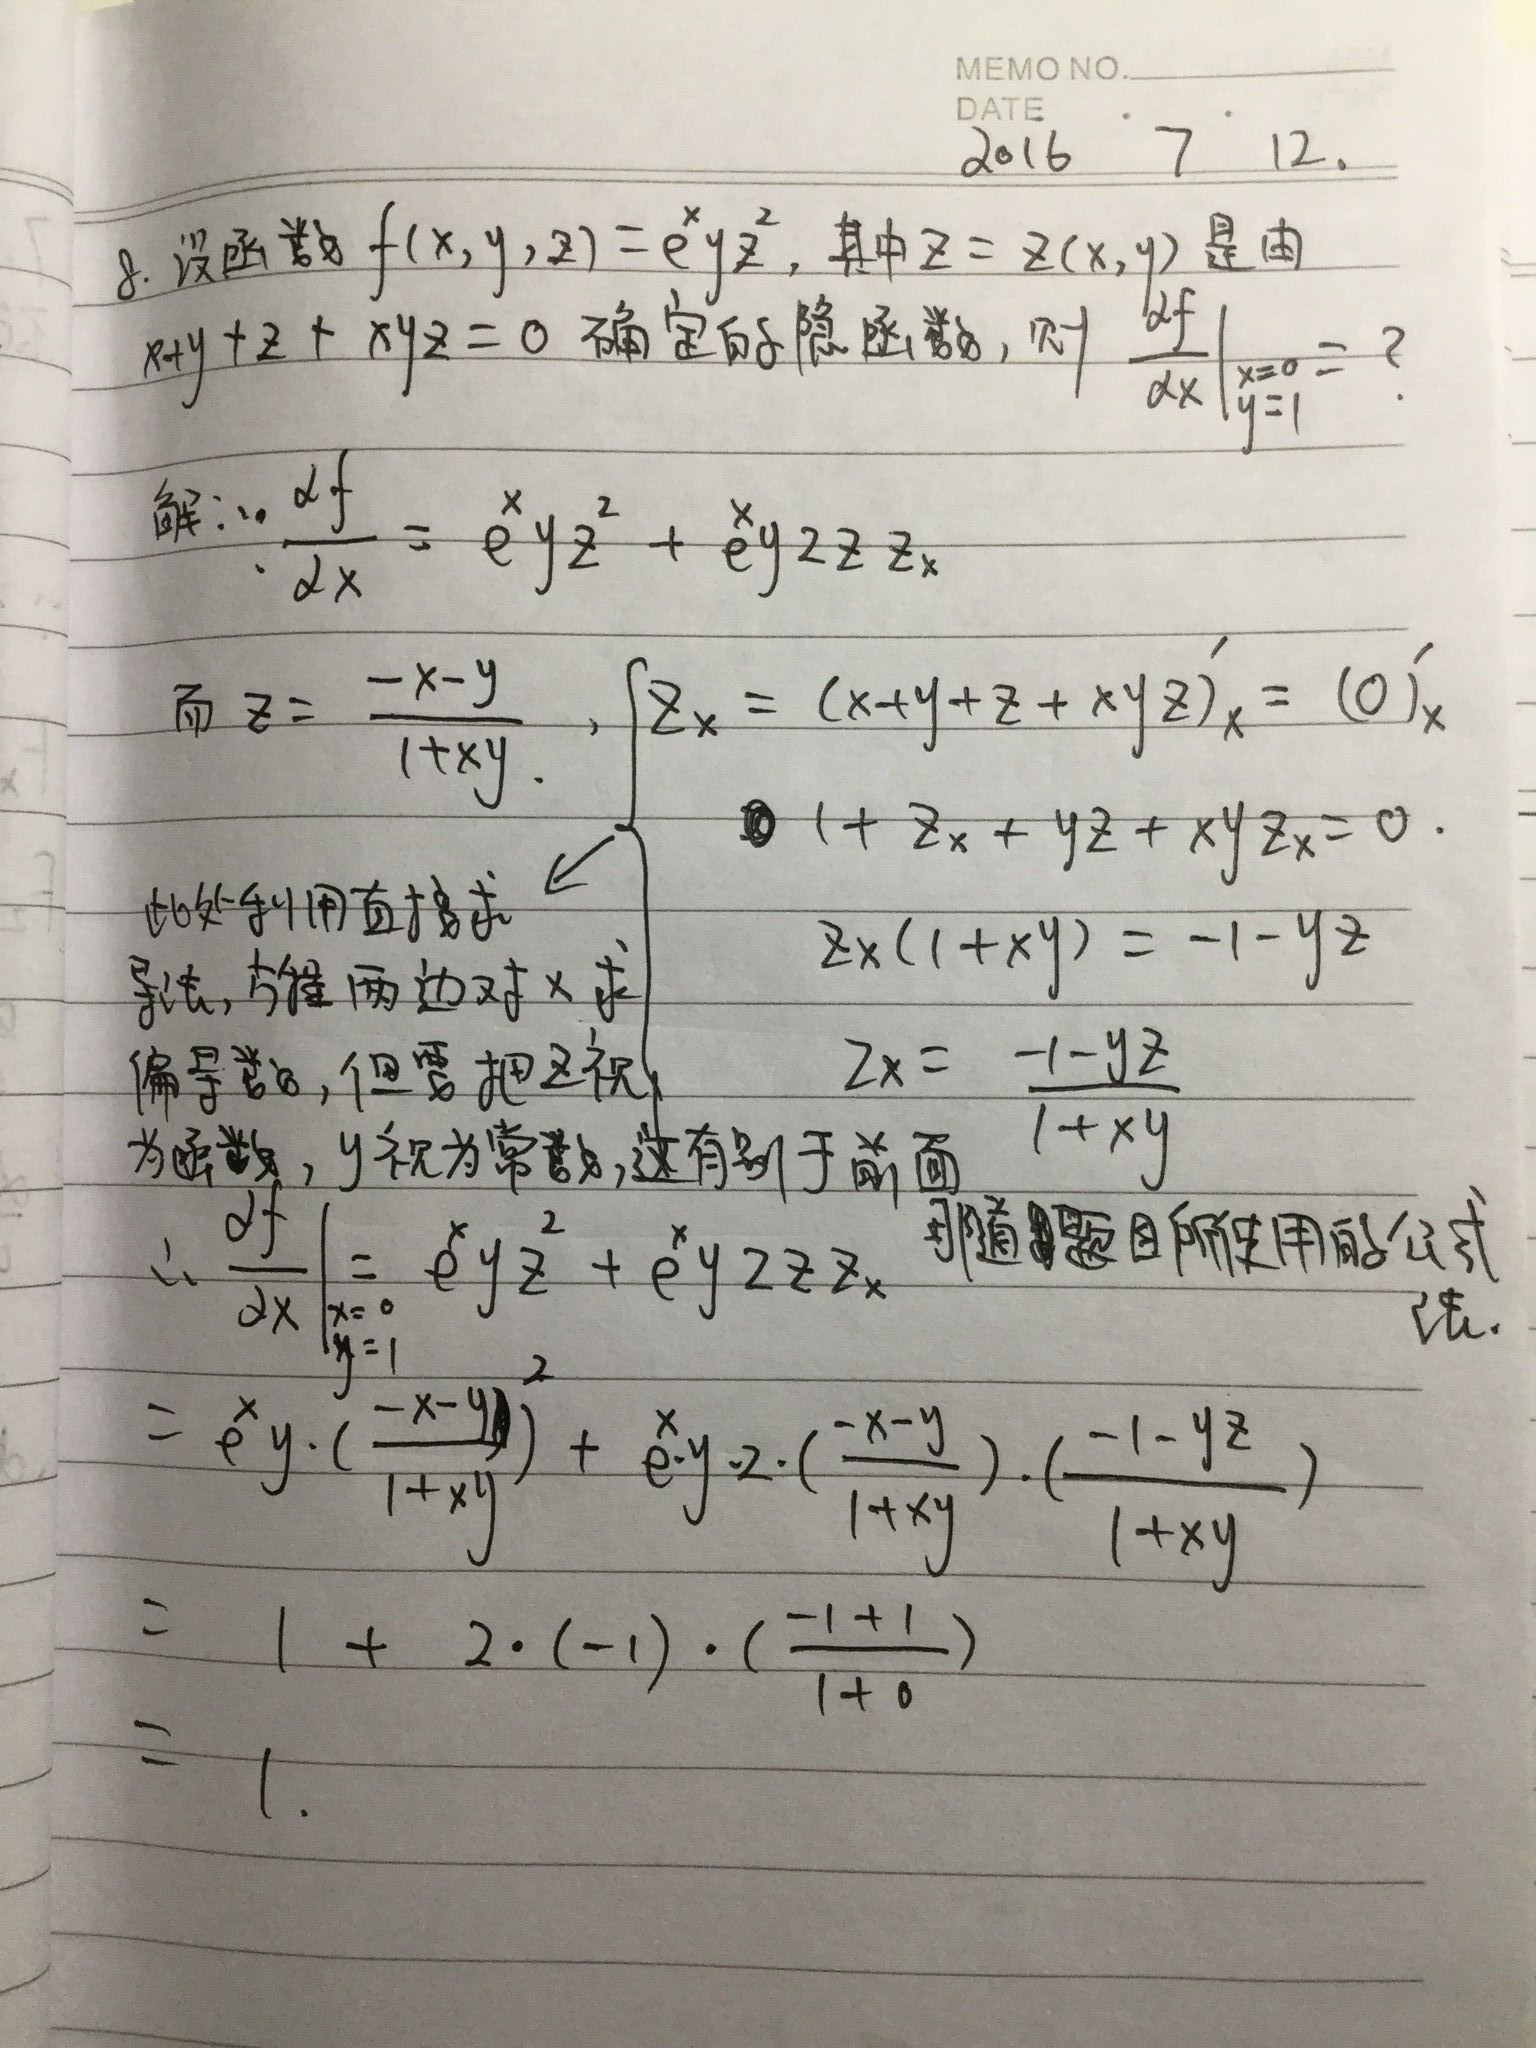 MEMO NO.
DATE
2016 7 12.
8. 设函数 f(x, y, z) = e^x y z^2, 其中 z = z(x, y) 是由
x+y+z+xyz=0 确定的隐函数, 则 ∂f/∂x |x=0 y=1 = ?
解: ∵ ∂f/∂x = e^x y z^2 + e^x y 2 z z_x
而 z = (-x-y)/(1+xy) , { z_x = (x+y+z+xyz)'_x = (0)'_x
1 + z_x + yz + xy z_x = 0.
z_x(1+xy) = -1-yz
z_x = (-1-yz)/(1+xy)
此处利用直接求
导法, 方程两边对x求
偏导数, 但需把z视
为函数, y视为常数, 这有别于前面
那道题目所使用的公式
法.
∴ ∂f/∂x |x=0 y=1 = e^x y z^2 + e^x y 2 z z_x
= e^x y · ((-x-y)/(1+xy))^2 + e^x · y · 2 · ((-x-y)/(1+xy)) · ((-1-yz)/(1+xy))
= 1 + 2 · (-1) · ((-1+1)/(1+0))
= 1.